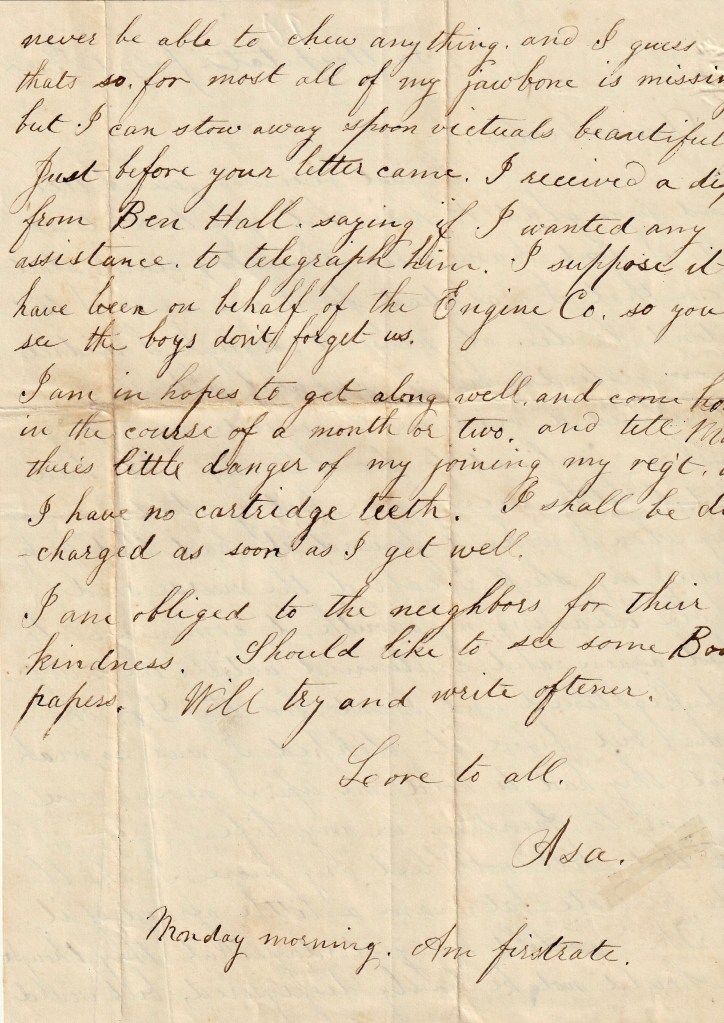 never be able to chew anything. and I guess
thats so. for most all of my jawbone is missin
but I can stow away spoon victuals beautiful
Just before your letter came. I received a di
from Ben Hall. saying if I wanted any
assistance. to telegraph him. I suppose it
have been on behalf of the Engine Co. so you
see the boys dont forget us.
I am in hopes to get along well. and come ho
in the course of a month or two. and tell M
there's little danger of my joining my reg't.
I have no cartridge teeth. I shall be di
-charged as soon as I get well.
I am obliged to the neighbors for their
kindness. Should like to see some Bo
papers. Will try and write oftener.
Love to all.
Asa.
Monday morning. Am firstrate.